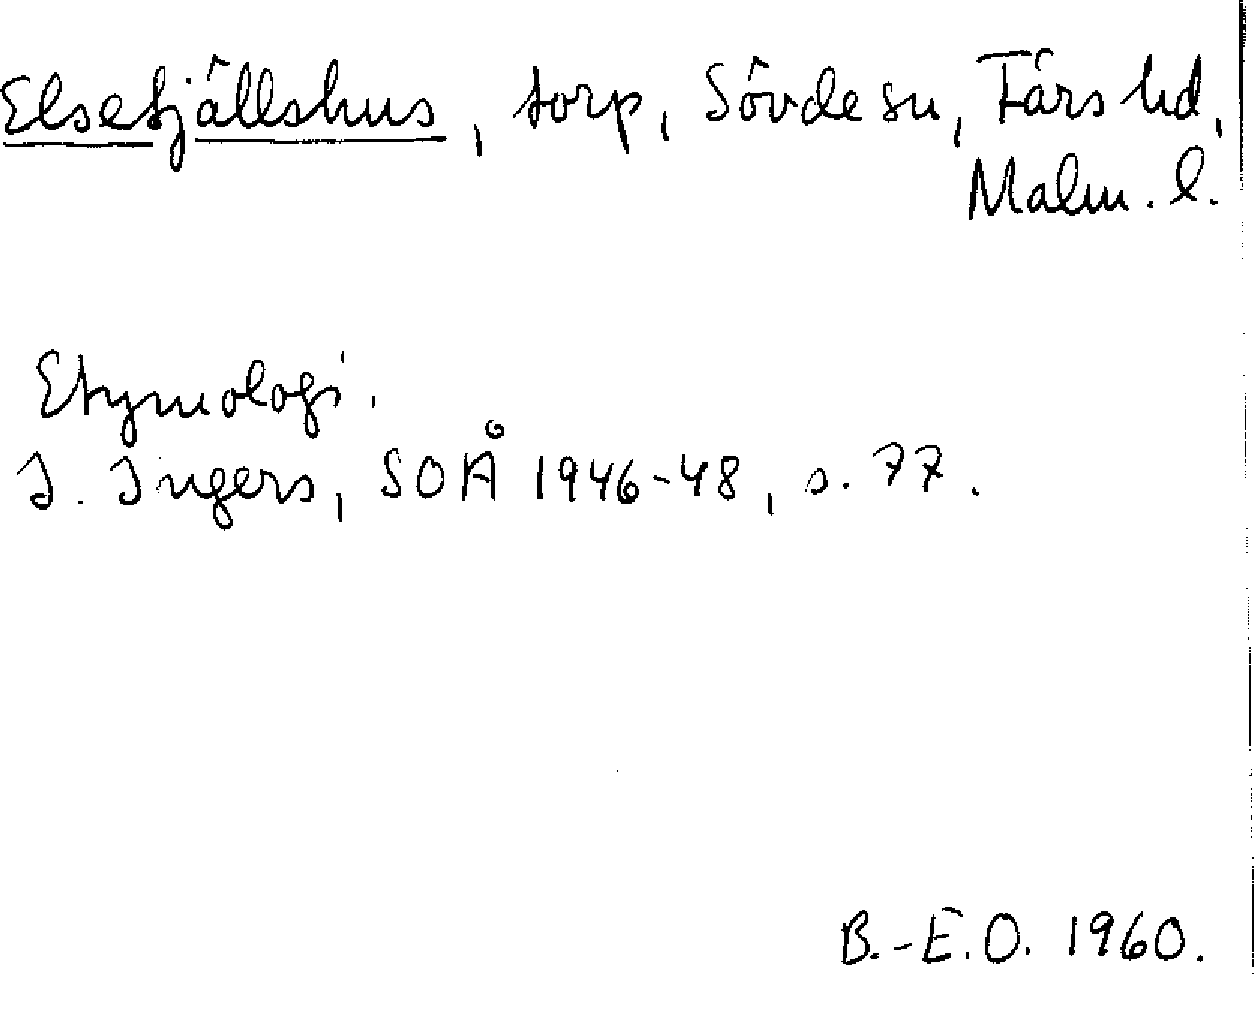 Elsefjällshus, torp, Sövde sn, Färs hd,
Malm. l.
Etymologi.
I. Ingers, SOÅ 1946-48, s. 77.
B.-E.O. 1960.